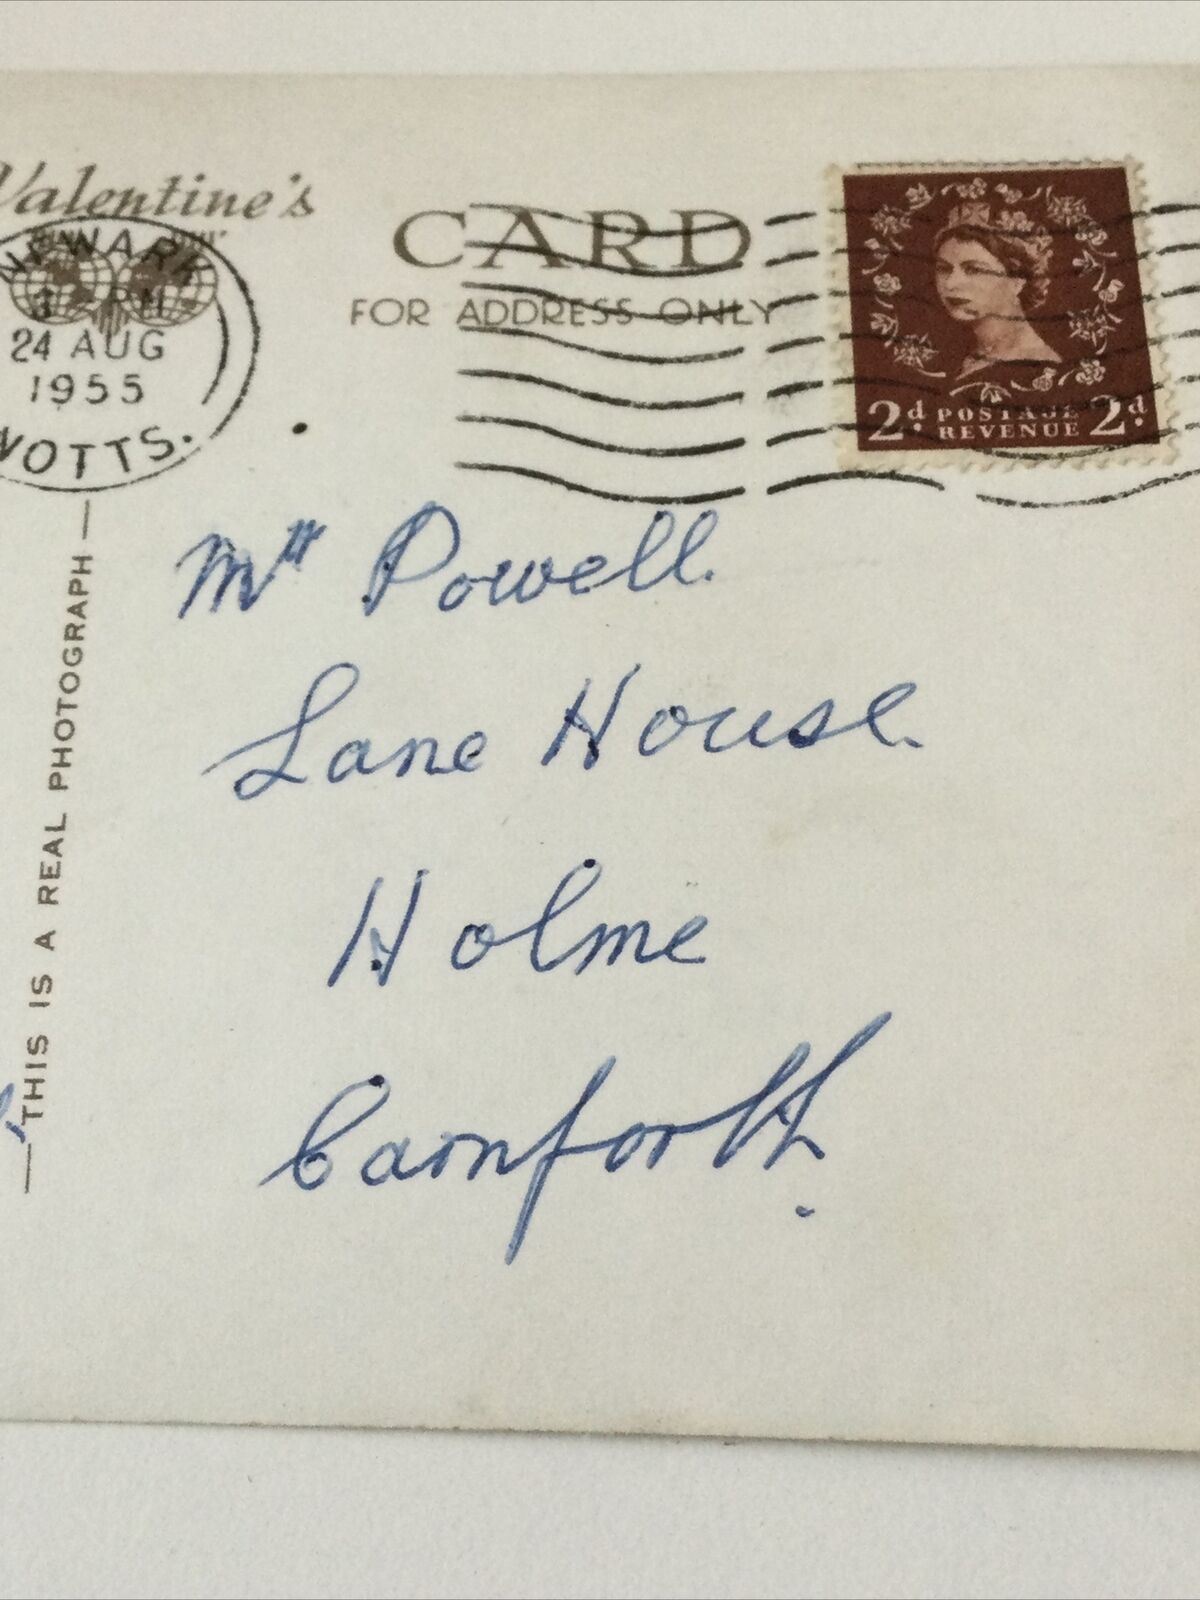 Valentine's
CARD
FOR ADDRESS ONLY
NEWARK
24 AUG
1955
NOTTS.
2d. POSTAGE REVENUE 2d.
THIS IS A REAL PHOTOGRAPH
Powell.
Lane House.
Holme
Carnforth.